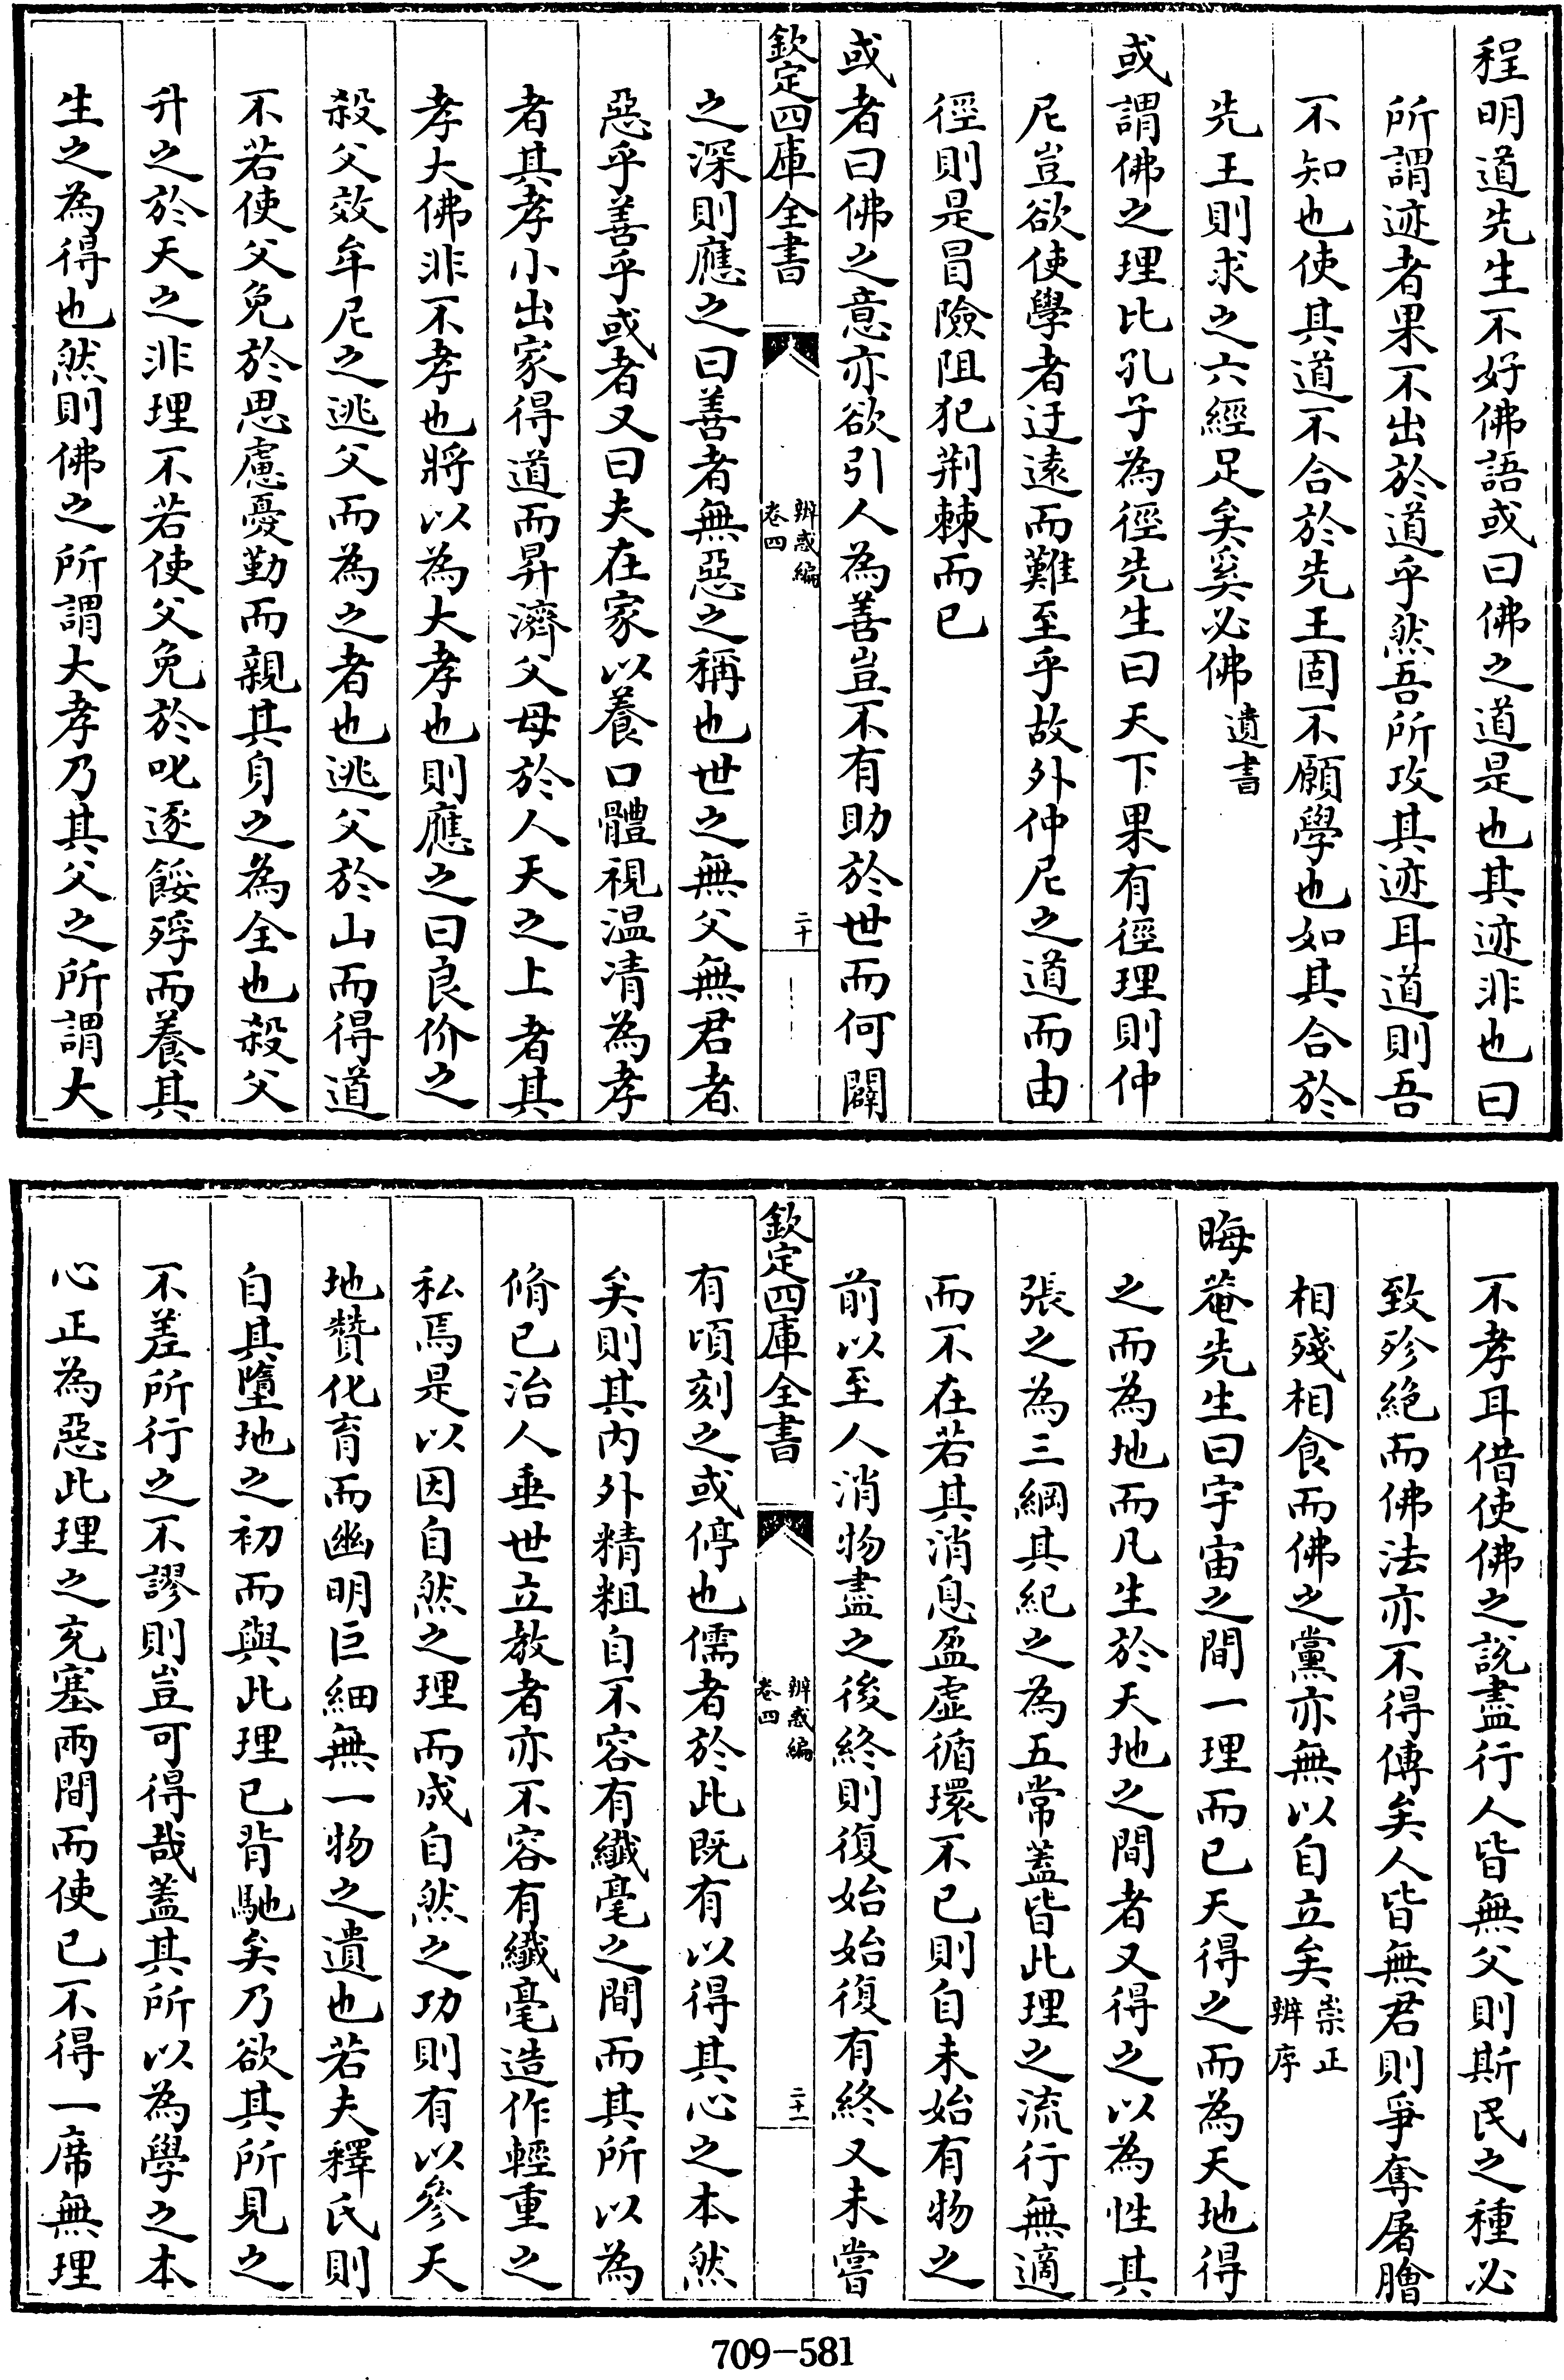 程明道先生不好佛語或曰佛之道是也其迹非也曰
所謂迹者果不出於道乎然吾所攻其迹耳道則吾
不知也使其道不合於先王固不願學也如其合於
先王則求之六經足矣奚必佛遺書
或謂佛之理比孔子為徑先生曰天下果有徑理則仲
尼豈欲使學者迂遠而難至乎故外仲尼之道而由
徑則是冒險阻犯荆棘而已
或者曰佛之意亦欲引人為善豈不有助於世而何闢
欽定四庫全書
辨惑編
卷四
二十
之深則應之曰善者無惡之稱也世之無父無君者
惡乎善乎或者又曰夫在家以養口體視温凊為孝
者其孝小出家得道而昇濟父母於人天之上者其
孝大佛非不孝也將以為大孝也則應之曰良价之
殺父效牟尼之逃父而為之者也逃父於山而得道
不若使父免於思慮憂勤而親其身之為全也殺父
升之於天之非理不若使父免於叱逐餒殍而養其
生之為得也然則佛之所謂大孝乃其父之所謂大
不孝耳借使佛之說盡行人皆無父則斯民之種必
致殄絕而佛法亦不得傳矣人皆無君則爭奪屠膾
相殘相食而佛之黨亦無以自立矣崇正
辨序
晦菴先生曰宇宙之間一理而已天得之而為天地得
之而為地而凡生於天地之間者又得之以為性其
張之為三綱其紀之為五常蓋皆此理之流行無適
而不在若其消息盈虛循環不已則自未始有物之
前以至人消物盡之後終則復始始復有終又未嘗
欽定四庫全書
辨惑編
卷四
二十一
有頃刻之或停也儒者於此既有以得其心之本然
矣則其內外精粗自不容有纖毫之間而其所以為
脩已治人垂世立教者亦不容有纖毫造作輕重之
私焉是以因自然之理而成自然之功則有以參天
地贊化育而幽明巨細無一物之遺也若夫釋氏則
自其墮地之初而與此理已背馳矣乃欲其所見之
不差所行之不謬則豈可得哉蓋其所以為學之本
心正為惡此理之充塞兩間而使已不得一席無理
709-581